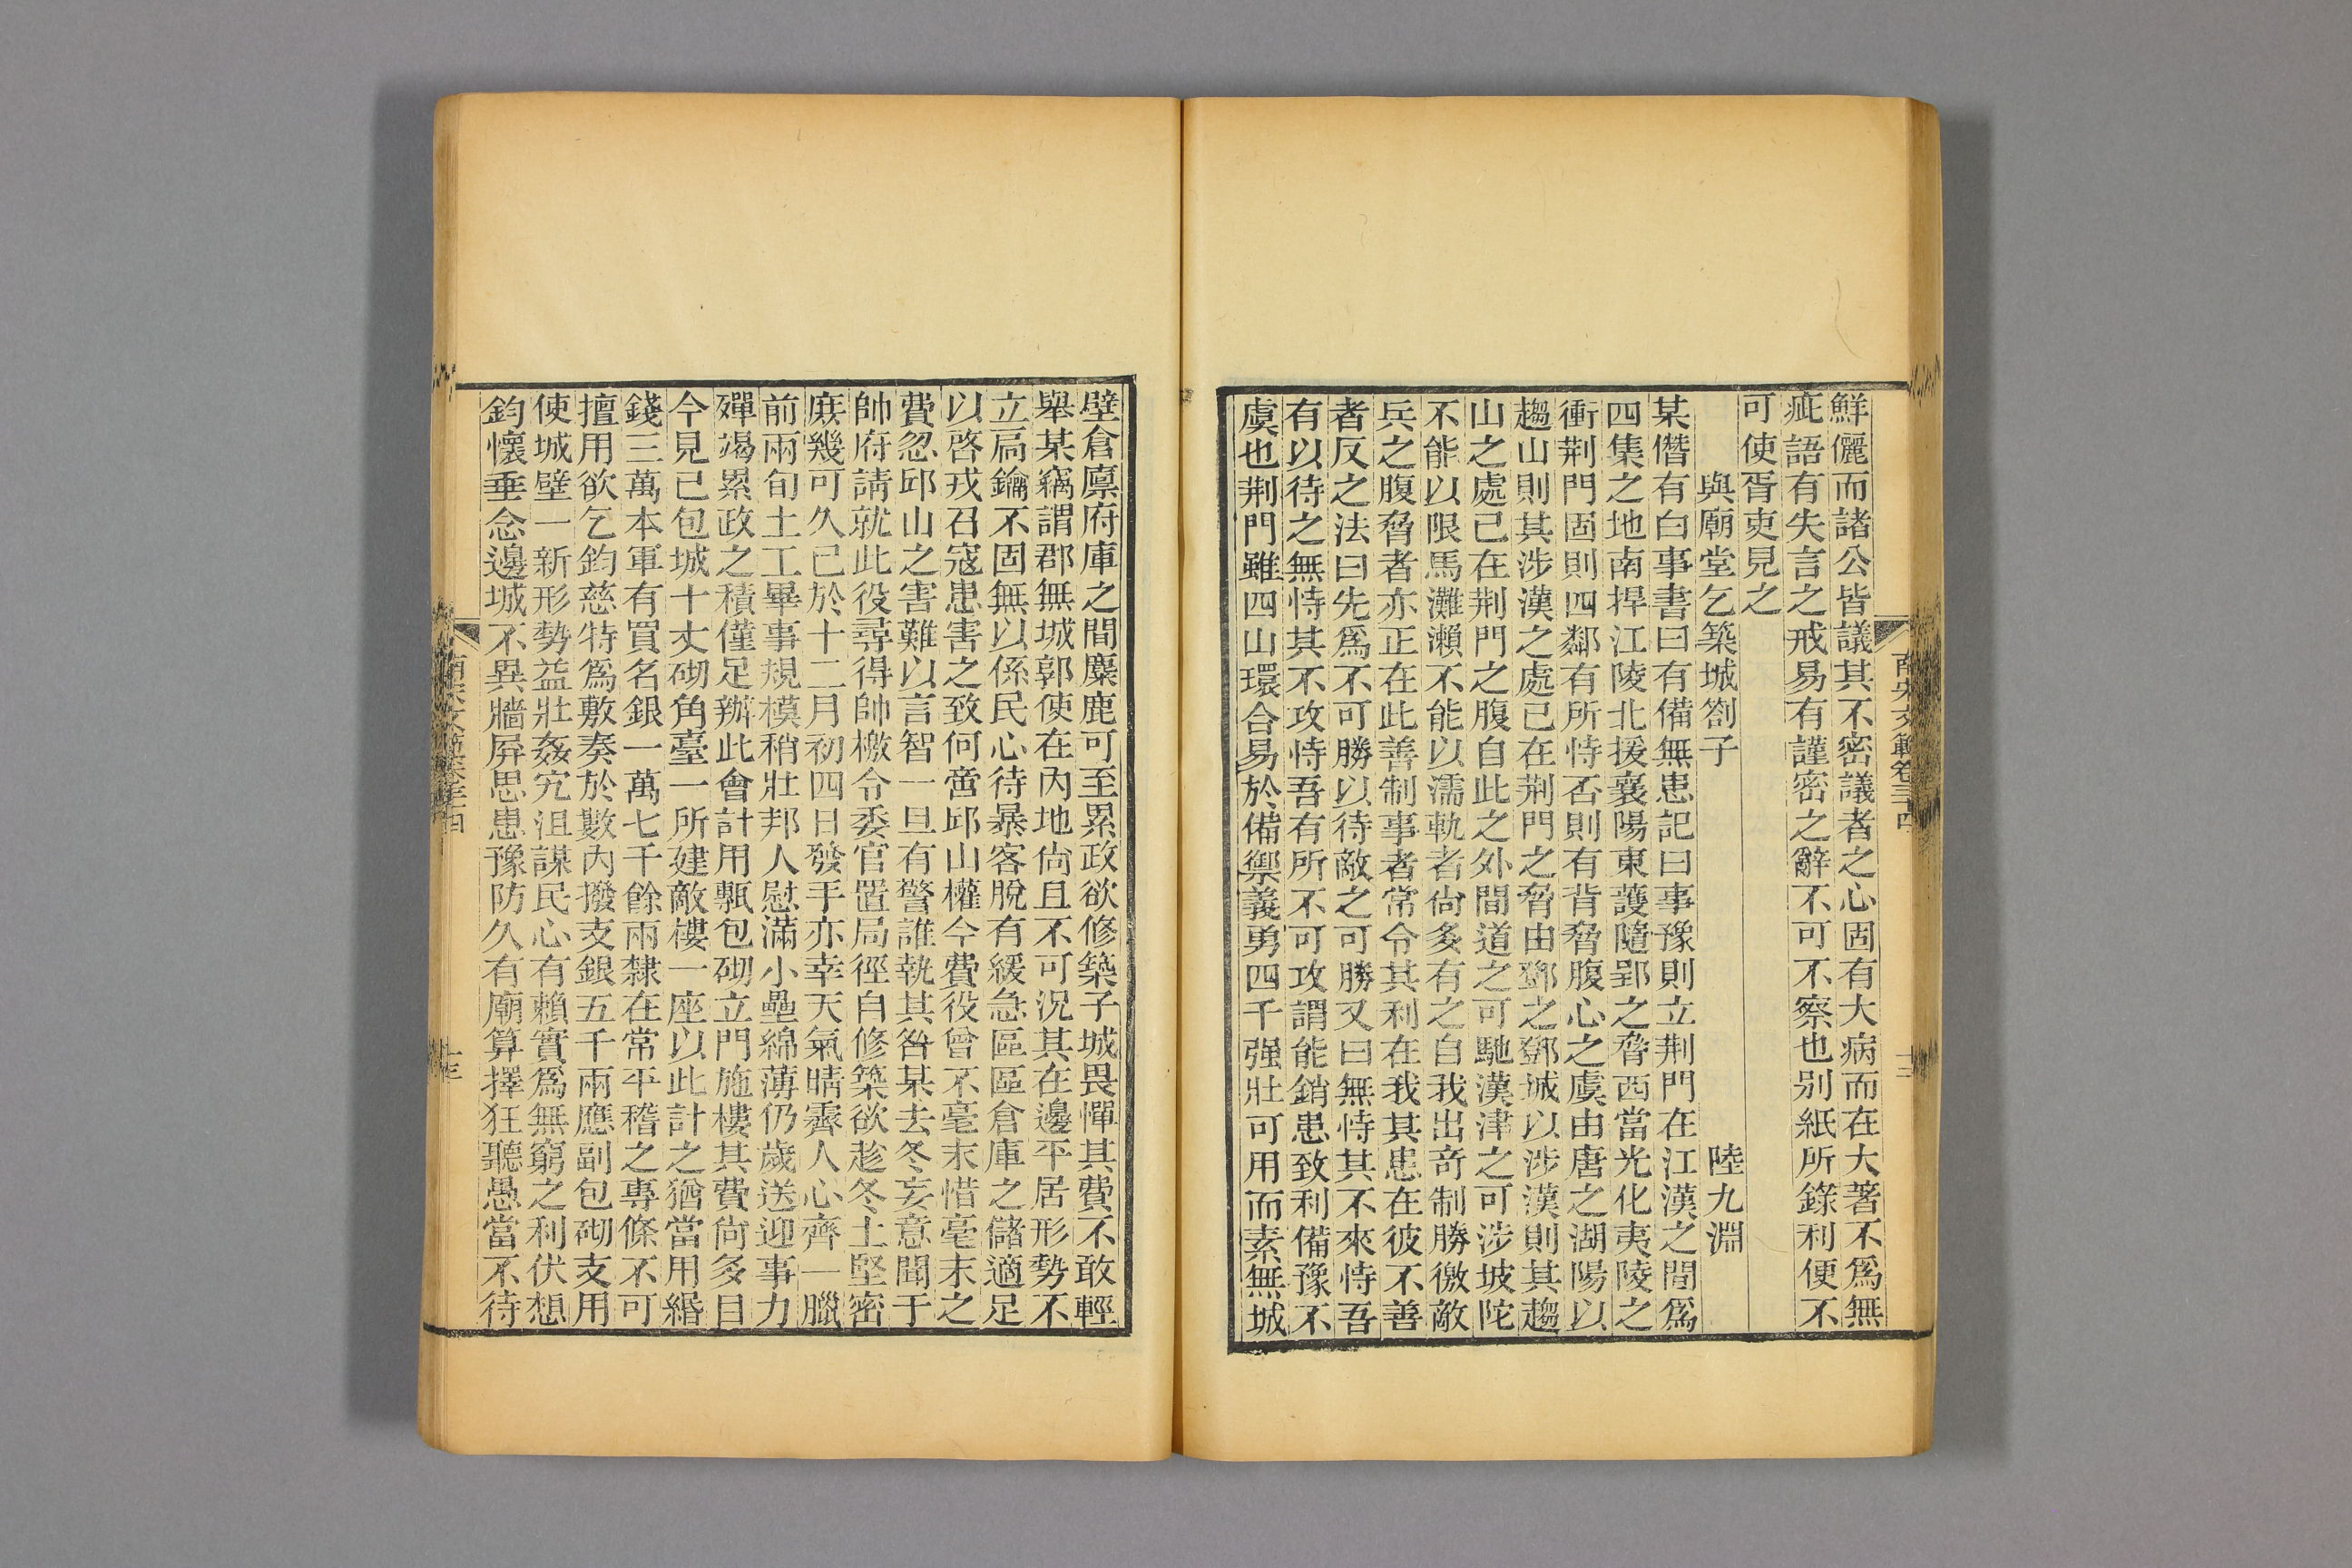 鮮儷而諸公皆議其不密議者之心固有大病而在大著不爲無
疵語有失言之戒易有謹密之辭不可不察也别紙所錄利便不
可使胥吏見之
與廟堂乞築城劄子
陸九淵
某僭有白事書曰有備無患記曰事豫則立荆門在江漢之間爲
四集之地南捍江陵北援襄陽東護隨郢之脅西當光化夷陵之
衝荆門固則四鄰有所恃否則有背脅腹心之虞由唐之湖陽以
趨山則其涉漢之處已在荆門之脅由鄧之鄧城以涉漢則其趨
山之處已在荆門之腹自此之外間道之可馳漢津之可涉坡陀
不能以限馬灘瀨不能以濡軌者尚多有之自我出奇制勝徼敵
兵之腹脅者亦正在此善制事者常令其利在我其患在彼不善
者反之法曰先爲不可勝以待敵之可勝又曰無恃其不來恃吾
有以待之無恃其不攻恃吾有所不可攻謂能銷患致利備豫不
虞也荆門雖四山環合易於備禦義勇四千强壯可用而素無城
壁倉廪府庫之間麋鹿可至累政欲修築子城畏憚其費不敢輕
舉某竊謂郡無城郭使在內地尚且不可況其在邊平居形勢不
立扃鑰不固無以係民心待暴客脫有緩急區區倉庫之儲適足
以啓戎召寇患害之致何啻邱山權今費役曾不毫末惜毫末之
費忽邱山之害難以言智一旦有警誰執其咎某去冬妄意聞于
帥府請就此役尋得帥檄令委官置局徑自修築欲趁冬土堅密
庶幾可久已於十二月初四日發手亦幸天氣晴霽人心齊一臘
前兩旬土工畢事規模稍壯邦人慰滿小壘綿薄仍歲送迎事力
殫竭累政之積僅足辦此會計用甎包砌立門施樓其費尚多目
今見已包城十丈砌角臺一所建敵樓一座以此計之猶當用緡
錢三萬本軍有買名銀一萬七千餘兩隸在常平稽之專條不可
擅用欲乞鈞慈特爲敷奏於數內撥支銀五千兩應副包砌支用
使城壁一新形勢益壯姦宄沮謀民心有賴實爲無窮之利伏想
鈞懷垂念邊城不異牆屏思患豫防久有廟算擇狂聽愚當不待
南宋文範卷三十四
十三